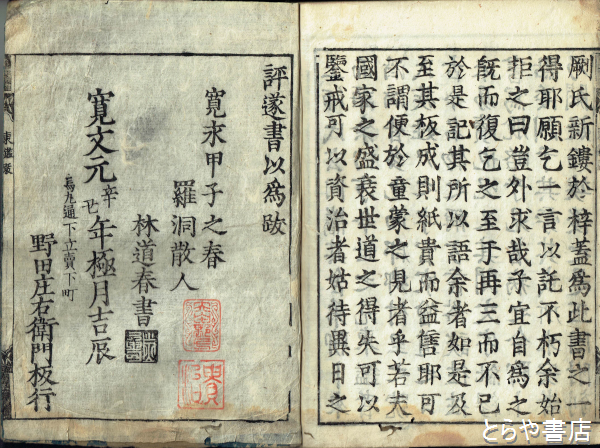 剞氏新鏤於梓蓋爲此書之一
得耶願乞一言以託不朽余始
拒之曰豈外求哉子宜自爲之
既而復乞之至于再三而不已
於是記其所以語余者如是及
至其板成則紙貴而益售耶可
不謂便於童蒙之見者乎若夫
國家之盛衰世道之得失可以
鑒戒可以資治者姑待異日之
評遂書以爲跋
寛永甲子之春
羅洞散人
林道春書
寛文元辛丑年極月吉辰
烏丸通下立賣下町
野田庄右衛門板行
東鑑跋
とらや書店